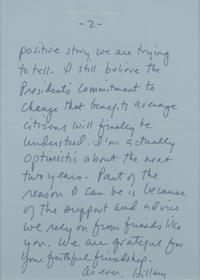 - 2 -
positive story we are trying
to tell. I still believe the
President's commitment to
change that benefits average
citizens will finally be
understood. I'm actually
optimistic about the next
two years. Part of the
reason I can be is because
of the support and advice
we rely on from friends like
you. We are grateful for
your faithful friendship.
As ever, Hillary